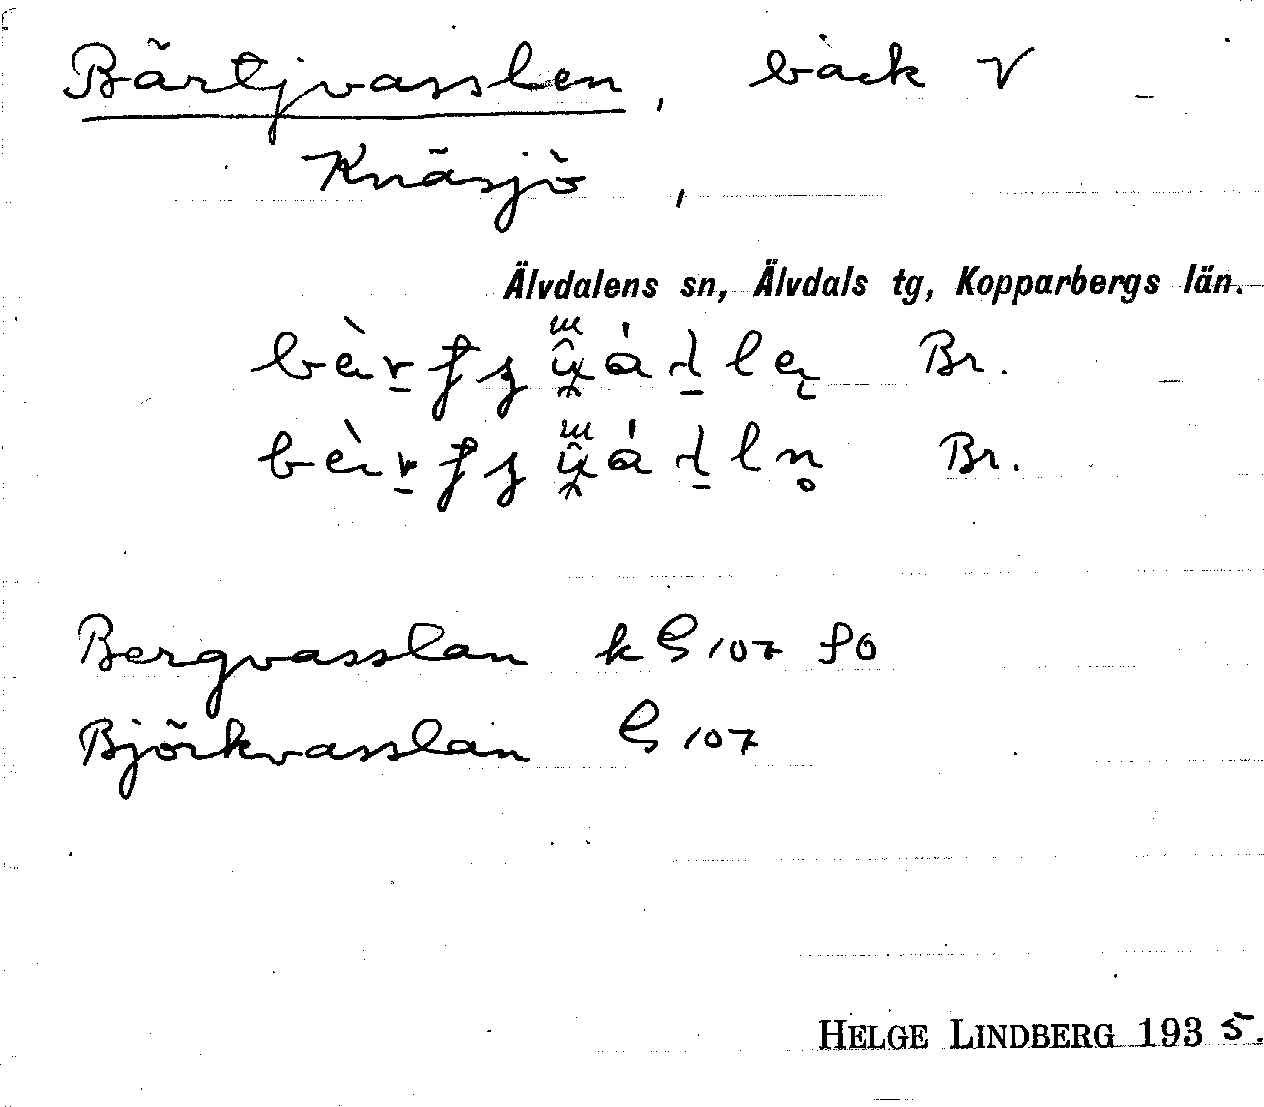 Bärtjvasslen, bäck V
Knäsjö,
Älvdalens sn, Älvdals tg, Kopparbergs län.
Br.
Br.
Bergvasslan k G 107 SO
Björkvasslan G 107
HELGE LINDBERG 1935.